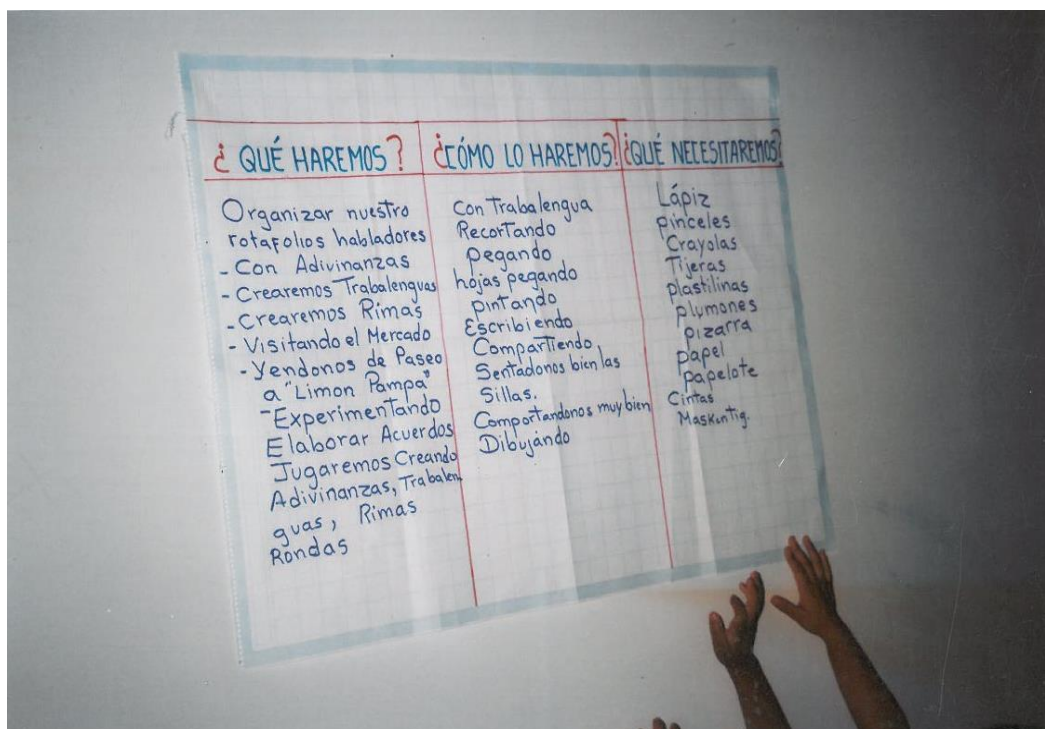 ¿ QUÉ HAREMOS?
Organizar nuestro
rotafolios habladores
- Con Adivinanzas
- Crearemos Trabalenguas
- Crearemos Rimas
- Visitando el Mercado
- Yendonos de Paseo
a "Limon Pampa"
- Experimentando
Elaborar Acuerdos
Jugaremos Creando
Adivinanzas, Trabalen
guas, Rimas
Rondas
¿CÓMO LO HAREMOS?
Con Trabalengua
Recortando
pegando
hojas pegando
pintando
Escribiendo
Compartiendo
Sentadonos bien las
Sillas.
Comportandonos muy bien
Dibujando
¿QUÉ NECESITAREMOS?
Lápiz
pinceles
Crayolas
Tijeras
plastilinas
plumones
pizarra
papel
papelote
Cintas
Maskinтig.